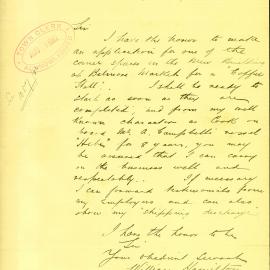 TOWN CLERK
Sir
I have the honor to make
an application for one of the
corner spaces in the New Building
at Belmore Market for a "Coffee
Stall". I shall be ready to
start as soon as they are
completed, and from my well
known character as Cook on
board Mr. A. Campbell's vessel
"Helen" for 8 years, you may
be assured that I can carry
on the business well and
respectably. If necessary
I can forward testimonials from
my Employers and can also
show my "shipping discharge"
I have the honor to be
Sir
Your obedient Servant
William Hamilton